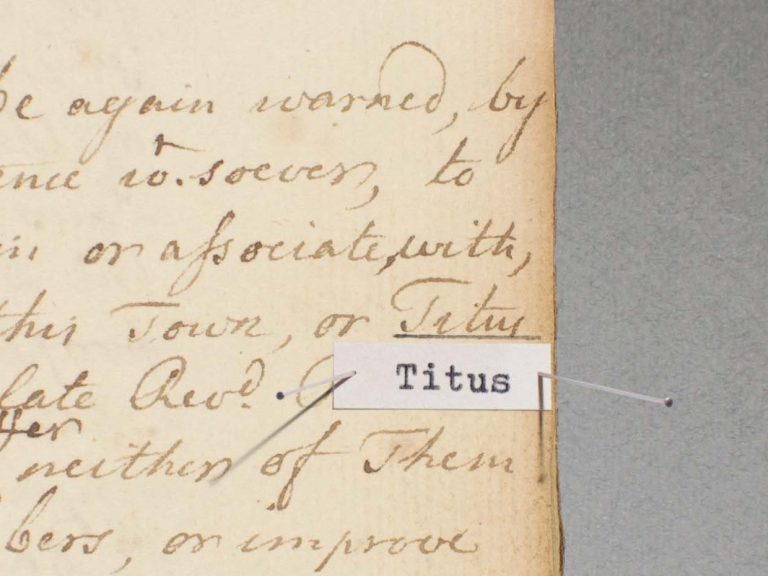 be again warned, by
ence wt. soever, to
in or associate, with,
this Town, or Titus
late Revd.
Titus
ffer
neither of Them
bers, or improve